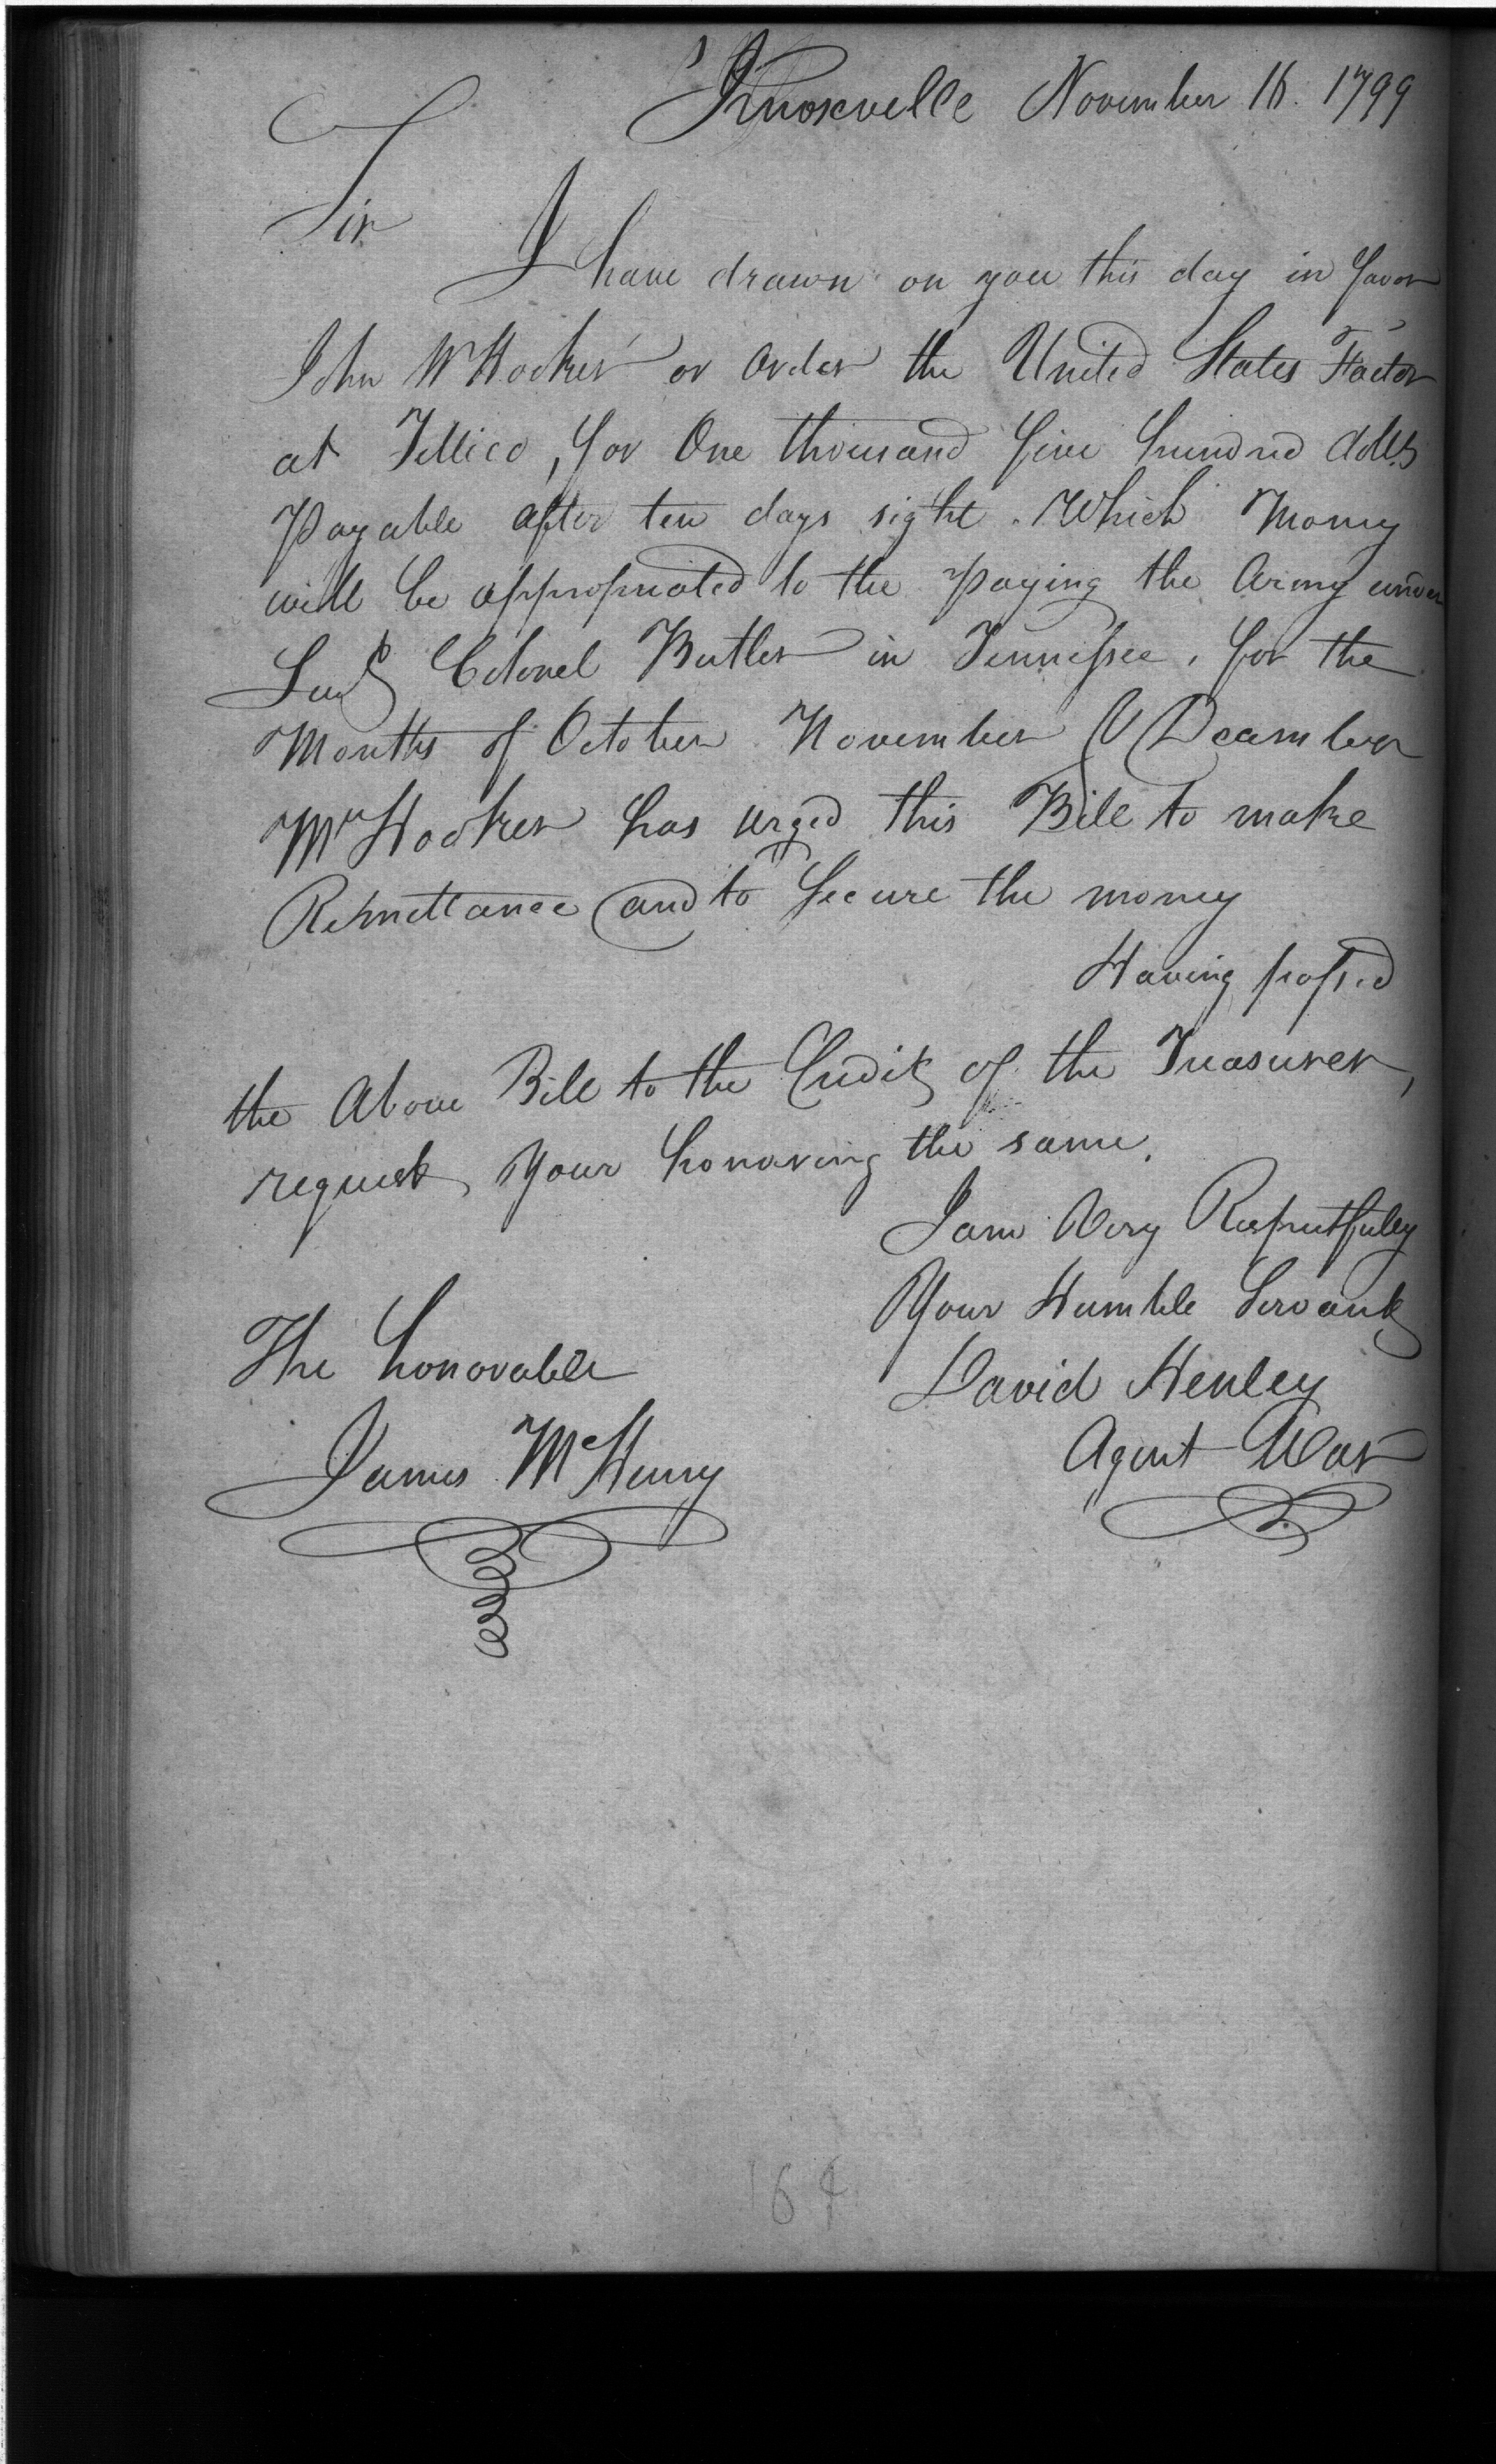 Knoxville November 16. 1799
Sir
I have drawn on you this day in favor
John W Hooker or Order the United States Factor
at Tellico, for One thousand five hundred dolls
Payable after ten days sight. Which Money
will be appropriated to the paying the Army under
Lieut Colonel Butler in Tennessee, for the
Months of October November & December
Mr Hooker has urged this Bill to make
Remittance and to Secure the money
Having passed
the Above Bill to the Credit of the Treasurer,
request Your honoring the same.
I am Very Respectfully
Your Humble Servant
The honorable
David Henley
James McHenry
Agent War
164